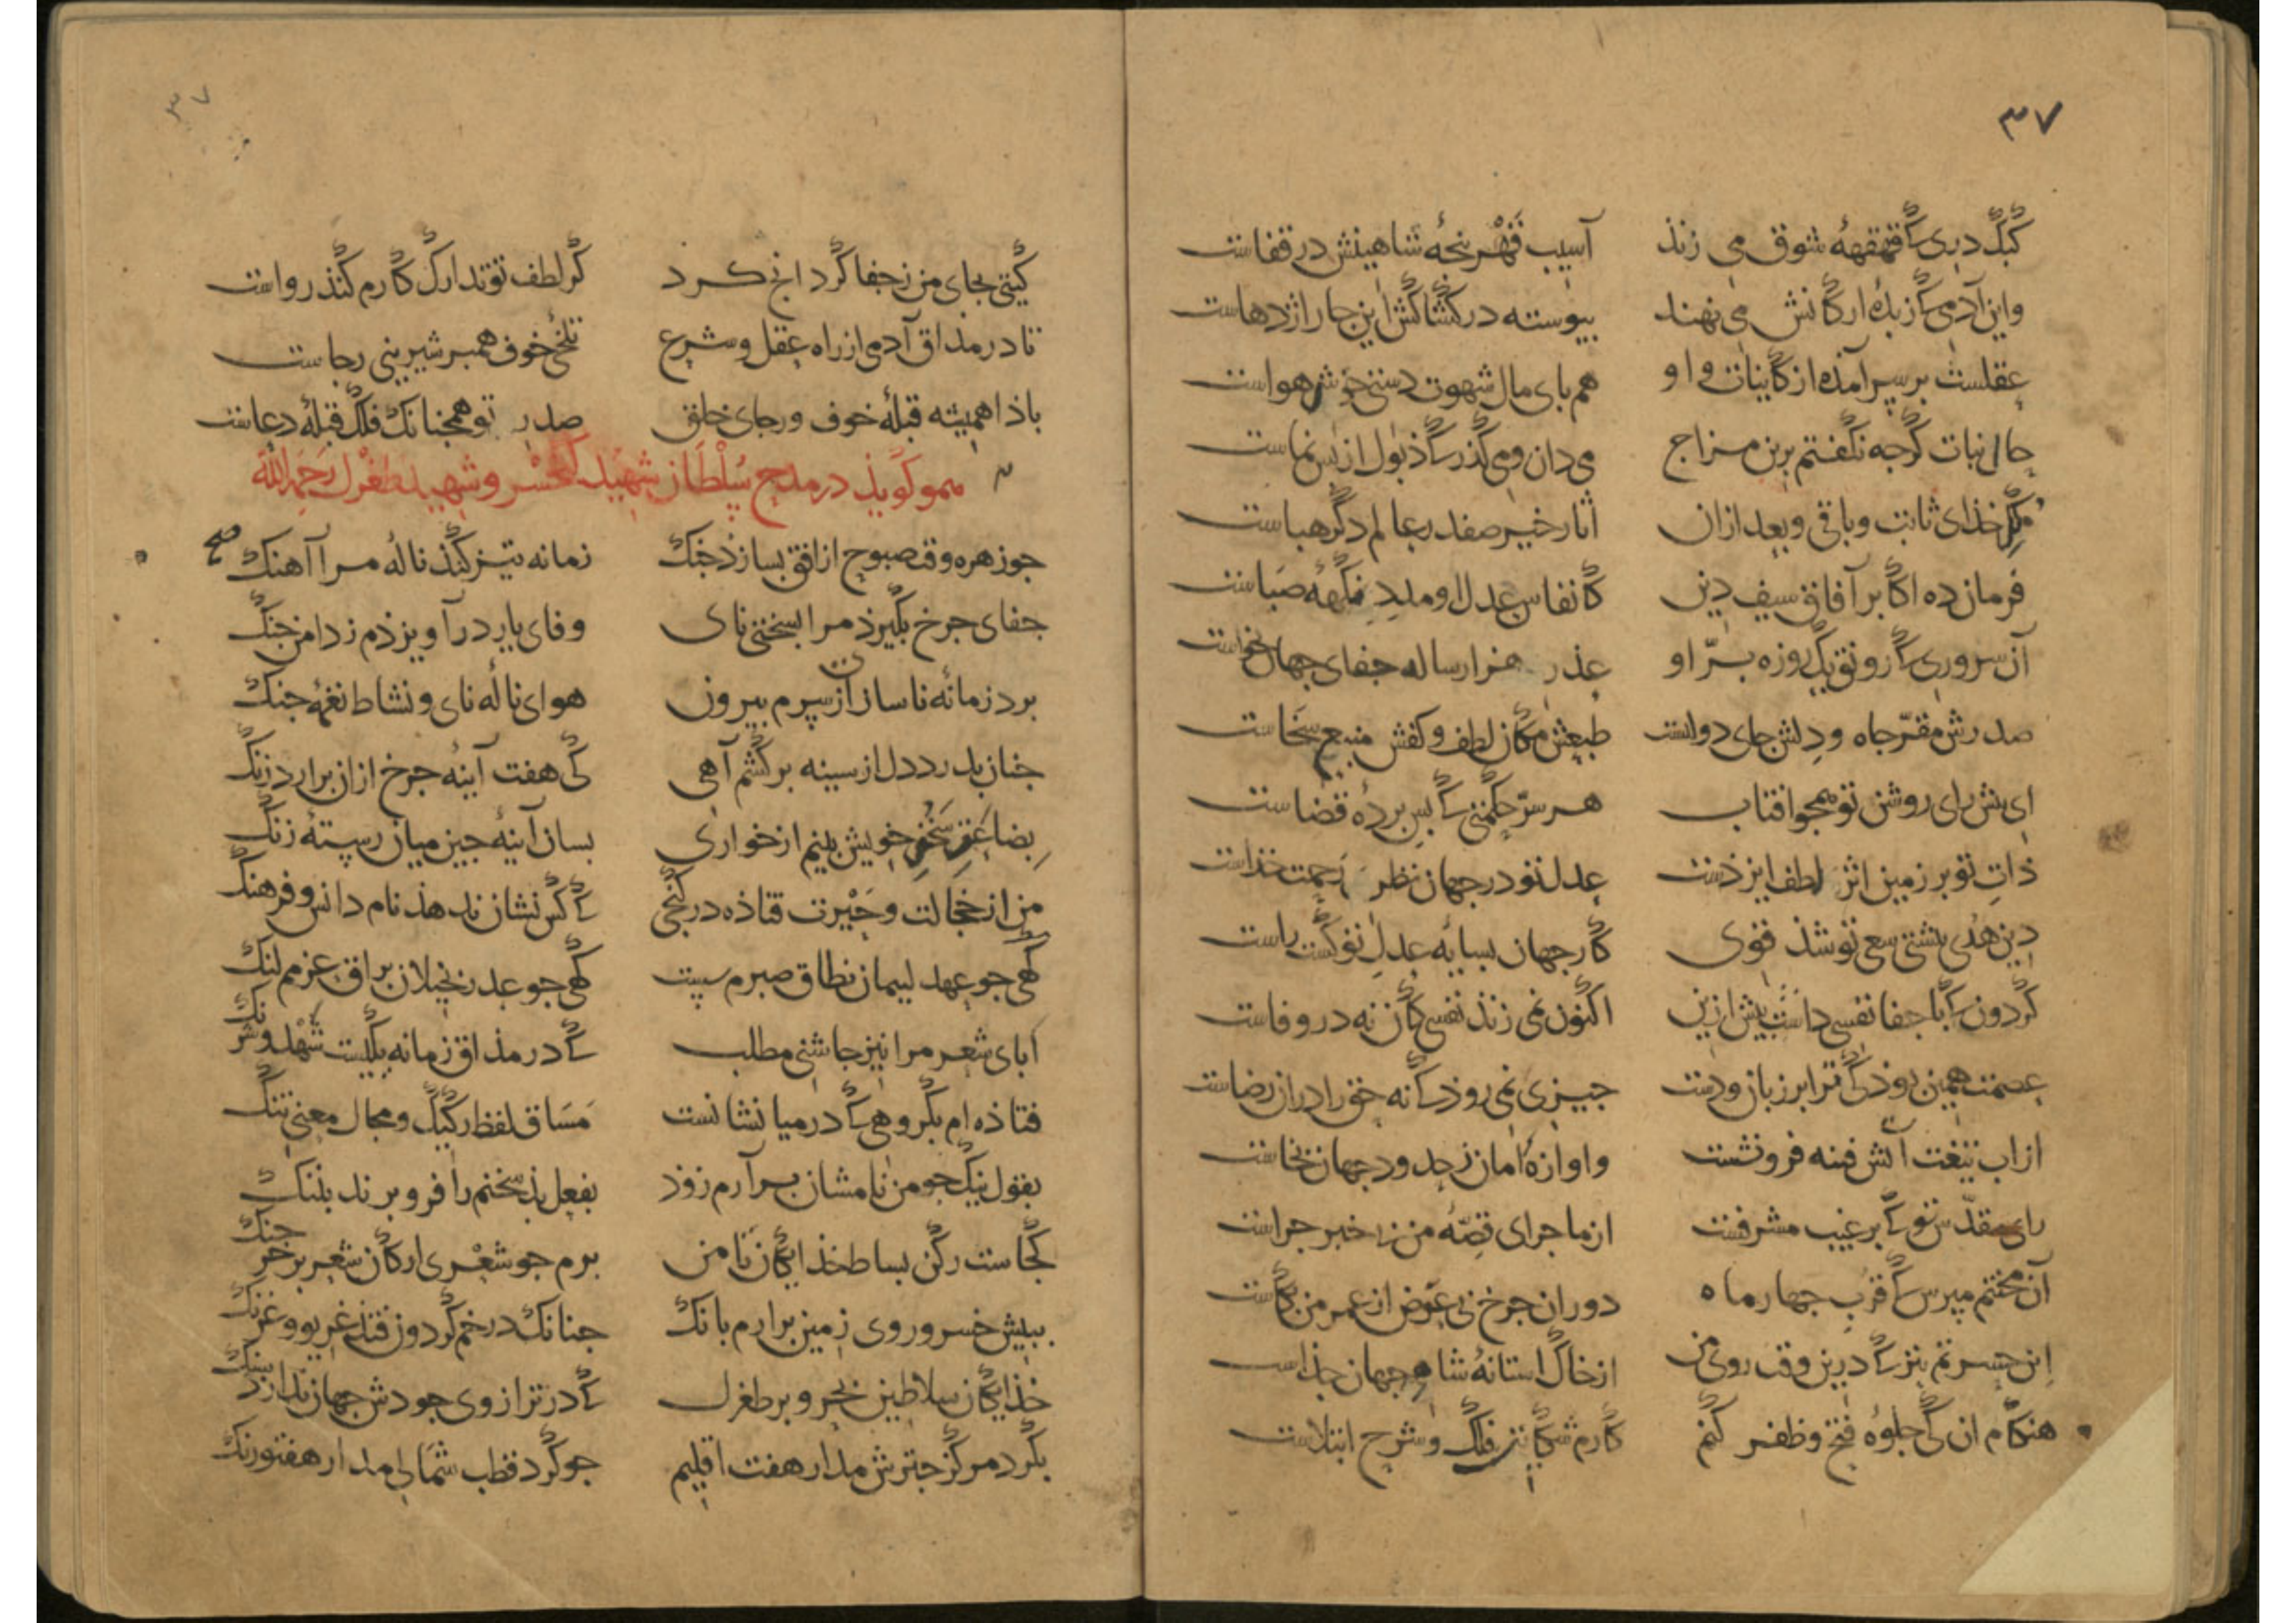 ۳۷
کبک دری که قهقههٔ شوق می زند آسیب قهر پنجهٔ شاهینش در قفاست
واین آدمی که زبدهٔ ارکانش می نهند پیوسته در کشاکش این چار اژدهاست
عقلست بر سر آمده از کاینات و او هم بای مال شهوت دستی خوش هواست
حال نبات کرجه نکفتم برین مزاج می دان و می گذر که ذبول از بس نماست
مکر خذای ثابت و باقی و بعد ازان اثار خیر صفدر عالم دکر هباست
فرمان ده اکابر آفاق سیف دین کانفاس عدل او مدد نکهه صباست
آن سروری که رونق یک روزه بر او عذر هزار ساله جفای جهان بخواست
صدرش مقر جاه و دلش جای دولست طبعش مکان لطف و کفش منبع سخاست
ای بیش رای روشن تو همجو افتاب هر سر حکمتی که بس بردهٔ قضاست
ذات تو بر زمین اثر لطف ایزدست عدل تو در جهان نظر رحمت خذاست
دین هدی بشتی سعی تو شذ قوی کار جهان بسایهٔ عدل تو کشت راست
کردون که با جفا نفسی داشت بیش ازین اکنون نمی زند نفسی کان نه در وفاست
عصمت همین بوذ که ترا بر زبان و دست جیزی نمی روذ که نه حق را دران رضاست
از اب تیغت آتش فتنه فرو نشست واوازهٔ امان ز حدود جهان بخاست
رای مقدس تو که بر غیب مشرفست از ماجرای قصهٔ من بی خبر جراست
آن محنتم مپرس که قرب جهار ماه دوران جرخ بی عوض از عمر من بکاست
این حسرتم بتر که درین وقت روی من از خاک استانهٔ شاه جهان جذاست
هنکام ان که جلوه فتح و ظفر کنم کارم شکایت فلک و شرح ابتلاست
۳۷
کیتی بجای من ز جفا کرد انج کرد کر لطف تو تدارک کارم کنذ رواست
تا در مذاق آدمی از راه عقل و شرع تلخی خوف همبر شیرینی رجاست
باذا همیشه قبلهٔ خوف و رجای خلق صدر تو همجنانک فلک قبلهٔ دعاست
همو کویذ در مدح سلطان شهید کیخسرو شهید طغرل رحمه الله
جو زهره وقت صبوح از افق بسازذ جنک زمانه تیز کنذ نالهٔ مرا آهنک صح
جفای جرخ بکیرذ مرا بسختی نای وفای یار در آویزذم ز دامن جنک
برد زمانهٔ ناساز از سرم بیرون هوای نالهٔ نای و نشاط نغمهٔ جنک
جنان بدرد دل از سینه برکشم آهی کی هفت آینهٔ جرخ ازان برارد زنک
بضاعت سخن خویش بینم از خواری بسان آینهٔ جین میان رستهٔ زنک
من از خجالت و حیرت فتاذه در کنجی که کس نشان ندهذ نام دانش و فرهنک
کهی جو عهد لیمان نطاق صبرم سست کهی جو عذر بخیلان براق عزمم لنک
ابای شعر مرا نیز جاشنی مطلب که در مذاق زمانه یکیست شهد و شرنک
فتاذه ام بکروهی که در میانشانست مساق لفظ رکیک و مجال معنی تنک
بقول نیک جو من نامشان برآرم زوذ بفعل بد سخنم را فرو برند بننک
کجاست رکن بساط خذایکان تا من برم جو شعری ارکان شعر بر خرجنک
ببیش خسرو روی زمین برارم بانک جنانک در خم کردون فتذ غریو و غرنک
خذایکان سلاطین بحر و بر طغرل که در ترازوی جودش جهان ندارذ سنک
بکرد مرکز جترش مدار هفت اقلیم جو کرد قطب شمالی مدار هفتورنک